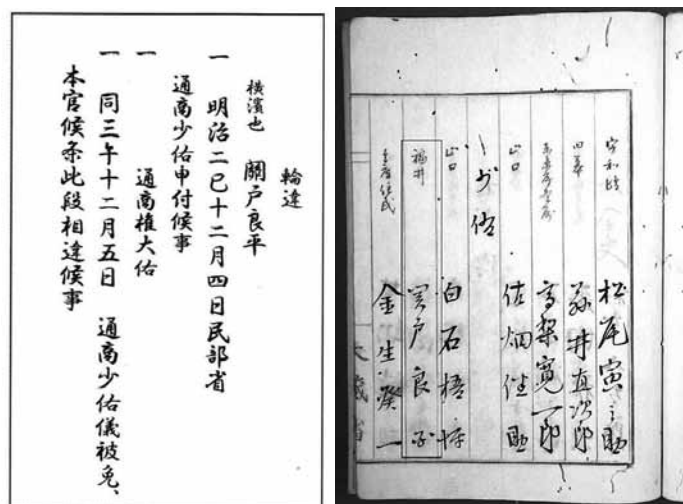 輪違
横濱也 關戸良平
一 明治二巳十二月四日民部省
通商少佑申付候事
一 通商権大佑
一 同三午十二月五日 通商少佑儀被免、
本官候条此段相達候事
松尾寅之助
藤井直次郎
高梨寛一郎
山口 佐畑健助
少佑
山口 白石梧
福井 関戸良平
金生癸一